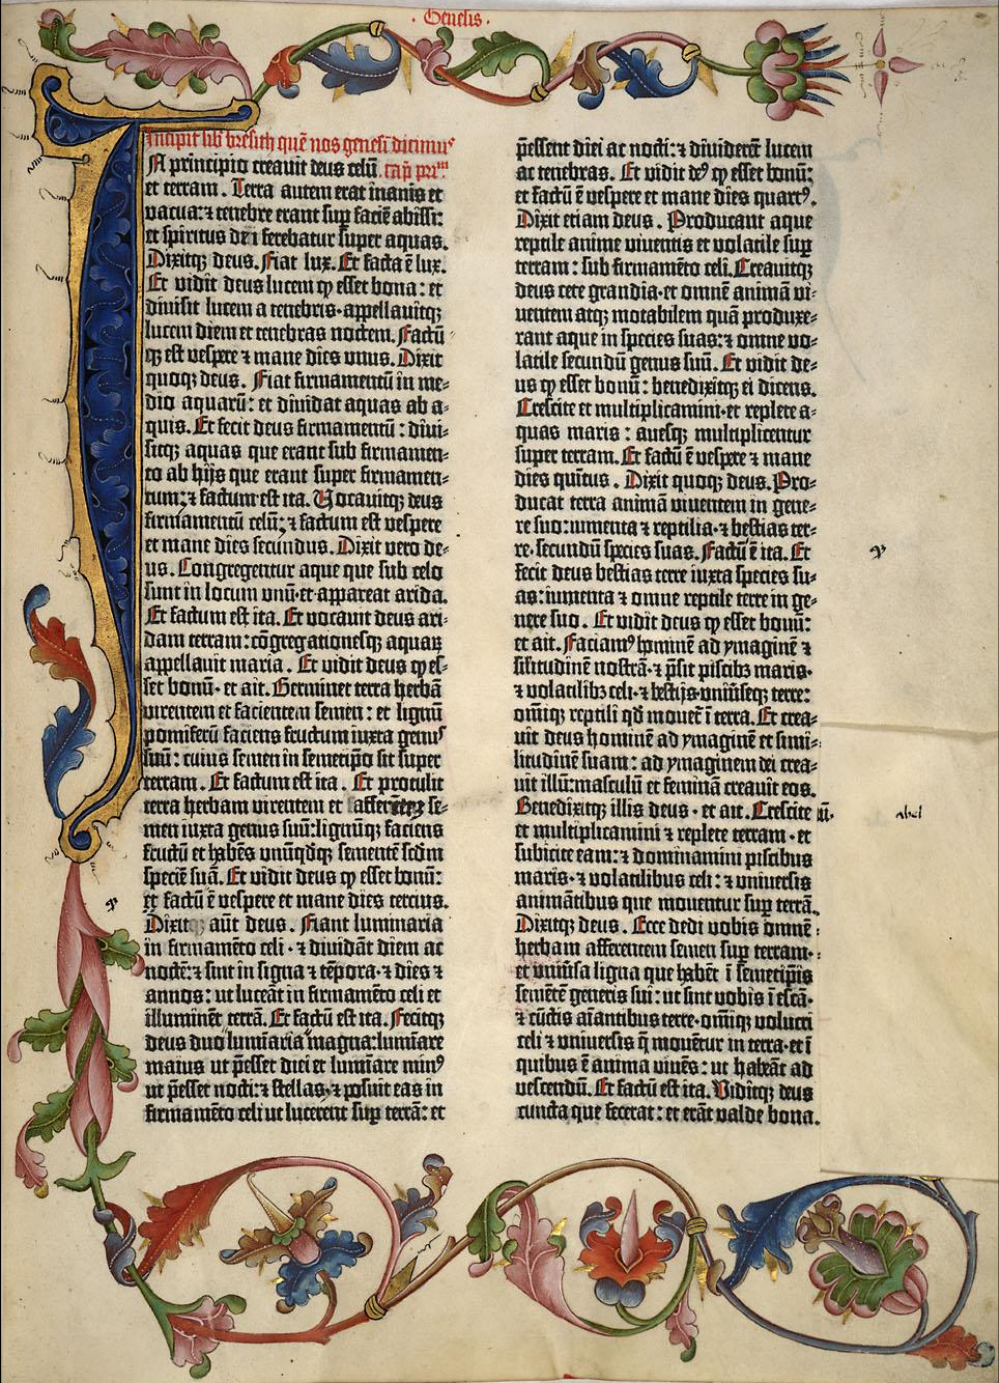 · Genesis ·
Incipit lib̄ bresith quē nos genesī dicimus
In principio creauit deus celū cap̄ prīm
et terram. Terra autem erat inanis et
vacua: ⁊ tenebre erant sup̄ faciē abissi:
et spiritus dei ferebatur super aquas.
Dixitqꝫ deus. Fiat lux. Et facta ē lux.
Et vidit deus lucem ꝙ esset bona: et
diuisit lucem a tenebris·appellauitqꝫ
lucem diem et tenebras noctem. Factū
qꝫ est vespere ⁊ mane dies vnus. Dixit
quoqꝫ deus. Fiat firmamentū in me-
dio aquarū: et diuidat aquas ab a-
quis. Et fecit deus firmamentū: diui-
sitqꝫ aquas que erant sub firmamen-
to ab hijs que erant super firmamen-
tum: ⁊ factum est ita. Vocauitqꝫ deus
firmamentū celū: ⁊ factum est vespere
et mane dies secundus. Dixit vero de-
us. Congregentur aque que sub celo
sunt in locum vnū·et·appareat arida.
Et factum est ita. Et vocauit deus ari-
dam terram: cōgregationesqꝫ aquaꝝ
appellauit maria. Et vidit deus ꝙ es-
set bonū· et ait. Germinet terra herbā
virentem et facientem semen: et lignū
pomiferū faciens fructum iuxta genus
suū: cuius semen in semetip̄o sit super
terram. Et factum est ita. Et protulit
terra herbam virentem et se-
men iuxta genus suū: lignūqꝫ faciens
fructū et habēs vnūqdqꝫ sementē scdm
speciē suā. Et vidit deus ꝙ esset bonū:
et factū ē vespere et mane dies tercius.
Dixitqꝫ aūt deus. Fiant luminaria
in firmamēto celi· ⁊ diuidāt diem ac
noctē: ⁊ sint in signa ⁊ tēpora· ⁊ dies ⁊
annos: ut luceāt in firmamēto celi et
illuminēt terrā. Et factū est ita. Fecitqꝫ
deus duo lumīaria magna: lumīare
maius ut p̄esset diei et lumīare minꝰ
ut p̄esset nocti: ⁊ stellas· ⁊ posuit eas in
firmamēto celi ut lucerent sup̄ terrā: et
p̄essent diei ac nocti: ⁊ diuiderēt lucem
ac tenebras. Et vidit deꝰ ꝙ esset bonū:
et factū ē vespere et mane dies quartꝰ.
Dixit etiam deus. Producant aque
reptile anime viuentis et volatile sup̄
terram: sub firmamēto celi. Creauitqꝫ
deus cete grandia·et omnē animā vi-
uentem atqꝫ motabilem quā produxe-
rant aque in species suas: ⁊ omne vo-
latile secundū genus suū. Et vidit de-
us ꝙ esset bonū: benedixitqꝫ ei dicens.
Crescite et multiplicamini·et replete a-
quas maris: auesqꝫ multiplicentur
super terram. Et factū ē vespere ⁊ mane
dies quītus. Dixit quoqꝫ deus. Pro-
ducat terra animā viuentem in gene-
re suo: iumenta ⁊ reptilia· ⁊ bestias ter-
re·secundū species suas. Factū ē ita. Et
fecit deus bestias terre iuxta species su-
as: iumenta ⁊ omne reptile terre in ge-
nere suo. Et vidit deus ꝙ esset bonū:
et ait. Faciamꝰ hominē ad ymaginē ⁊
silitudinē nostrā· ⁊ p̄sit piscibꝫ maris·
⁊ volatilibꝫ celi· ⁊ bestijs·vniūseqꝫ terre:
omīqꝫ reptili qd mouet ī terra. Et crea-
uit deus hominē ad ymaginē et simi-
litudinē suam: ad ymaginem dei crea-
uit illū: masculū et feminā creauit eos.
Benedixitqꝫ illis deus· et ait. Crescite
et multiplicamini ⁊ replete terram· et
subicite eam: ⁊ dominamini piscibus
maris· ⁊ volatilibus celi: ⁊ vniuersis
animātibus que mouentur sup̄ terrā.
Dixitqꝫ deus. Ecce dedi vobis omnē
herbam afferentem semen sup̄ terram·
et vniūsa ligna que habēt ī semetip̄is
semētē generis sui: ut sint vobis ī escā·
⁊ cūctis aīantibus terre·omīqꝫ volucri
celi ⁊ vniuersis q̄ mouētur in terra·et ī
quibus ē anima viuēs: ut habeāt ad
vescendū. Et factū est ita. Viditqꝫ deus
cuncta que fecerat: et erāt valde bona.